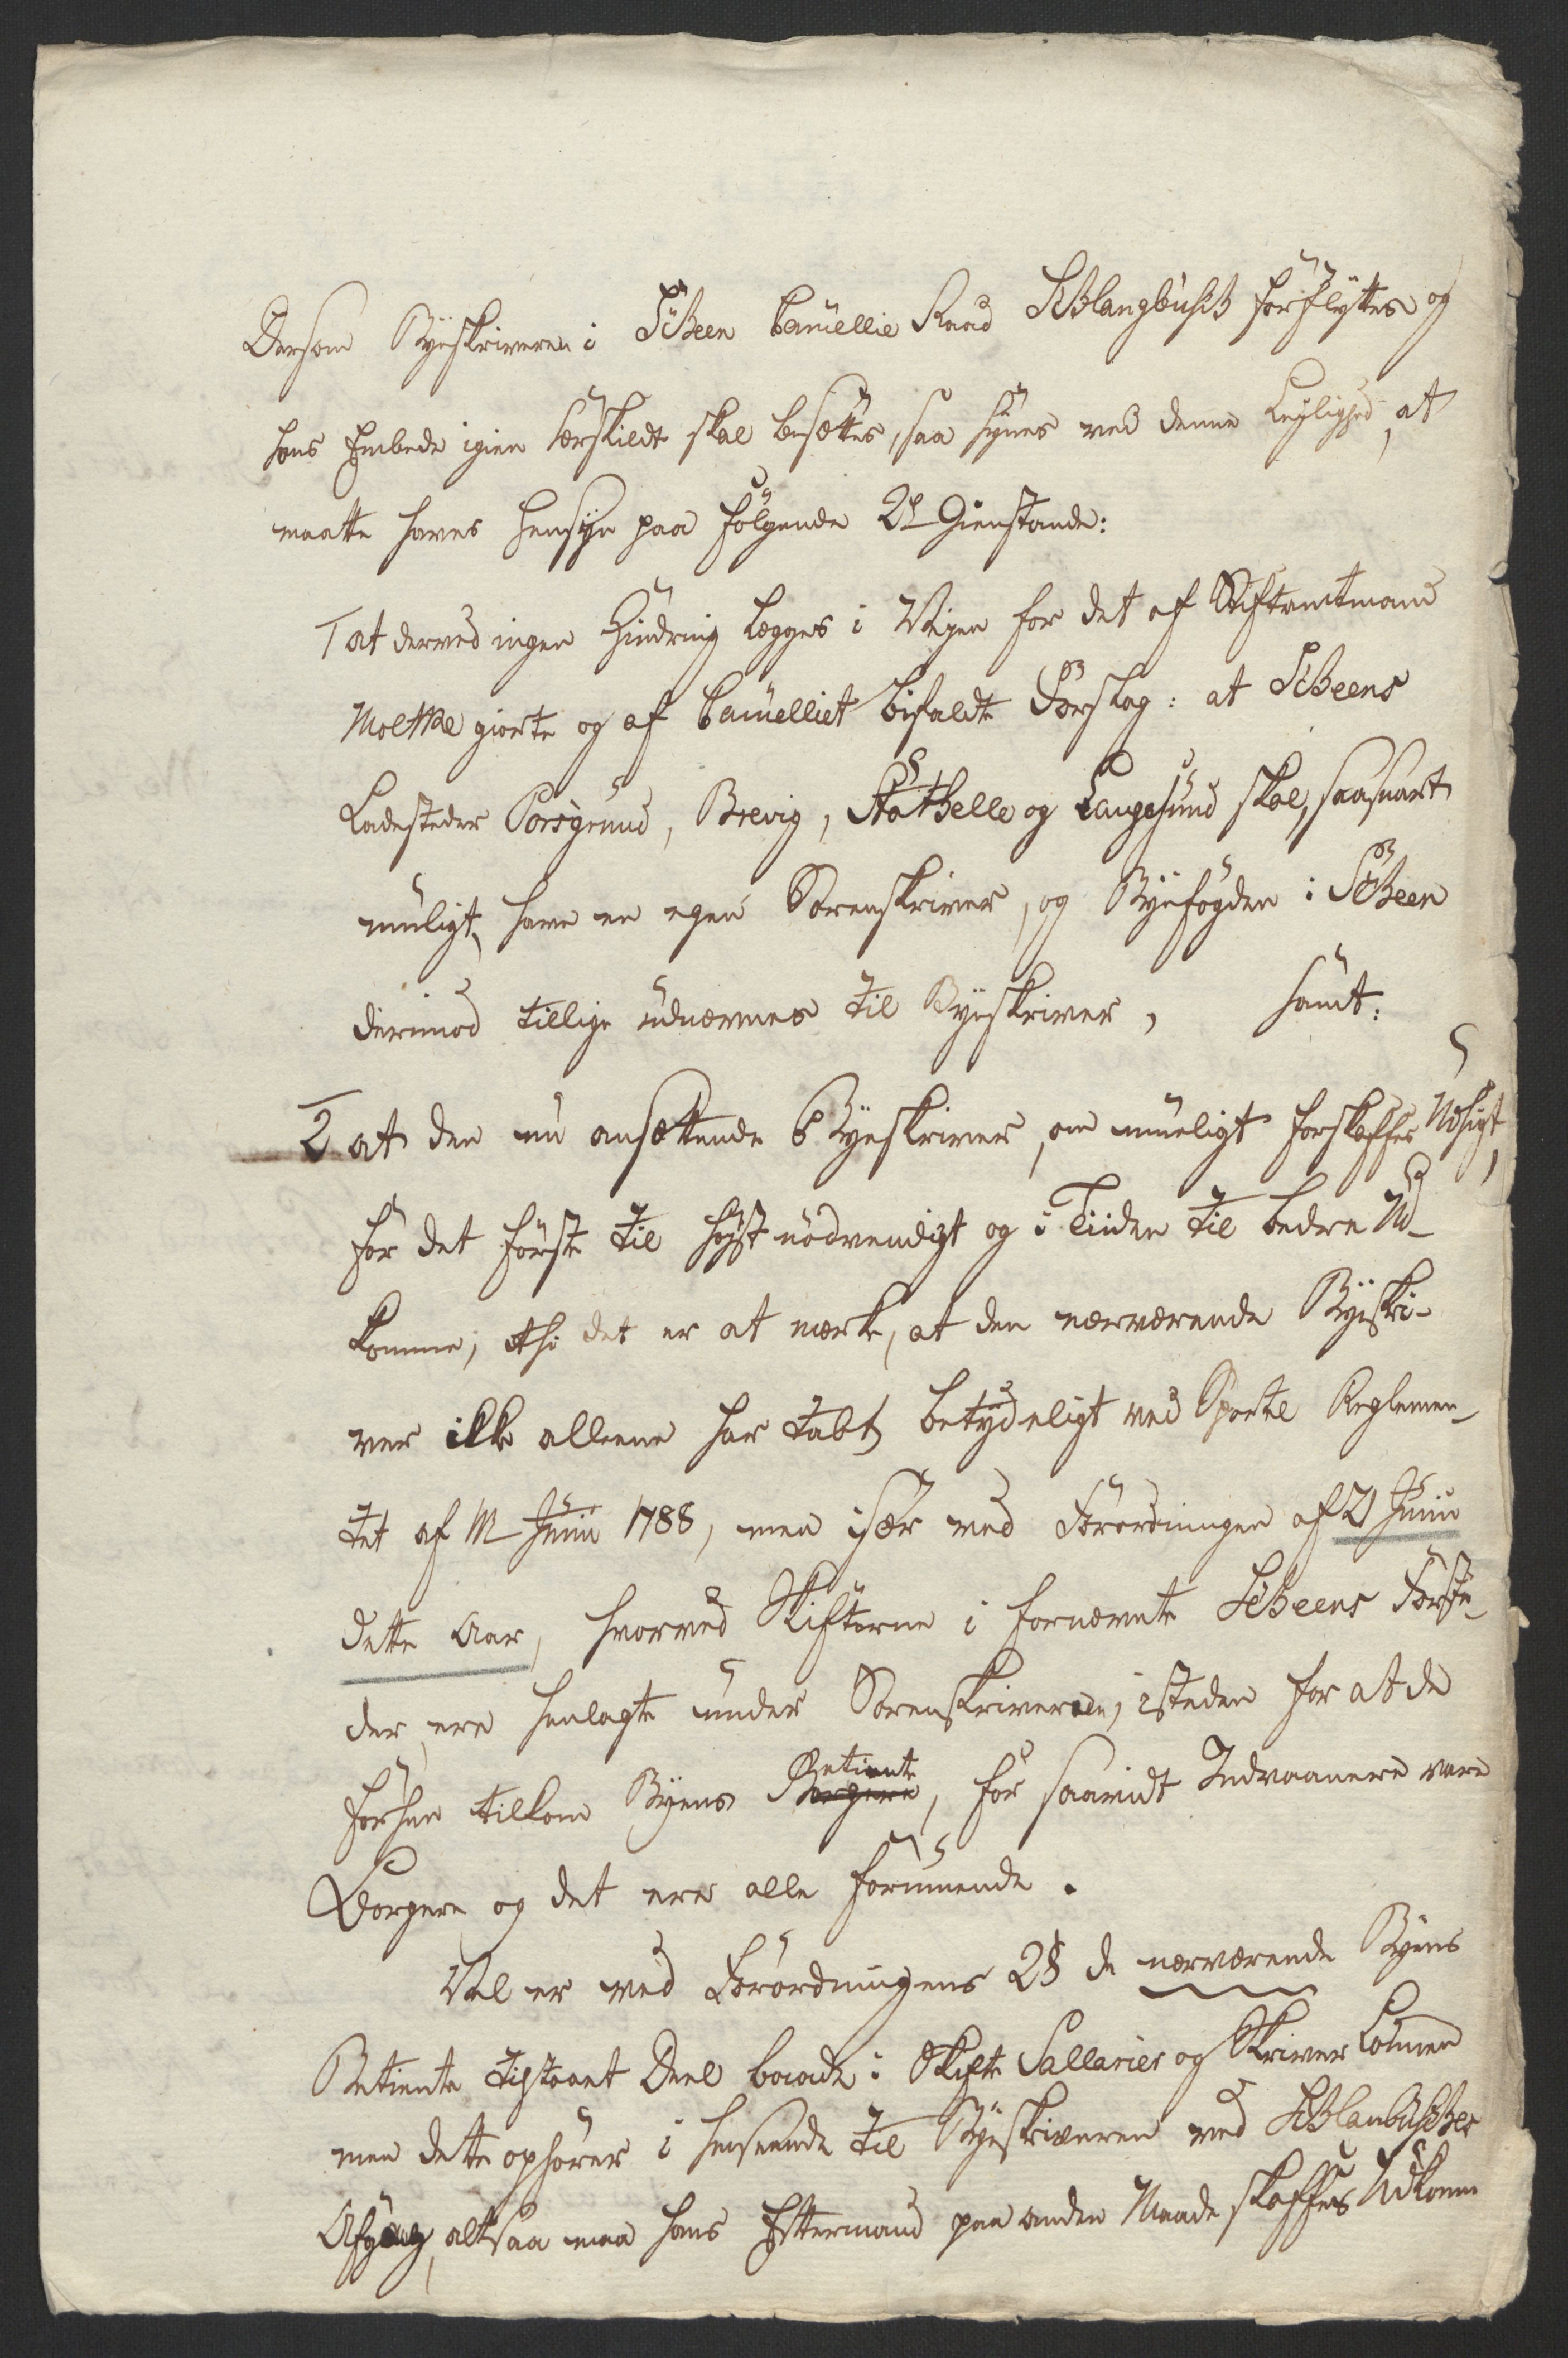 Dersom Byeskriveren i Scheen Cancellie Raad Schlangbusch forflyttes og
hans Embede igien særskildt skal besættes, saa synes ved denne Leylighed, at
maatte haves Hensyn paa følgende 2de Gienstande:
1 at derved ingen Hindring lægges i Vejen for det af Stiftamtmand
Moltke giorte og af Cancelliet bifaldte Forslag: at Scheens
Ladesteder Porsgrund, Brevig, Stathelle og Langesund skal, saasnart
muligt, have en egen Sorenskriver, og Byefogden i Scheen
derimod tillige udnævnes til Byeskriver, samt:
2 at den nu ansættende Byeskriver, om mueligt forskaffes Udsigt,
for det første til høyst nødvendigt og i Tiiden til bedre Ud-
komme; thi det er at mærke, at den nærværende Byeskri-
ver ikke alleene har tabt betydeligt ved Sportel Reglemen-
tet af 11 Junii 1788, men især ved Forordningen af 21 Junii
dette Aar, hvorved Skifterne i fornævnte Scheens Forstæ-
der ere henlagte under Sorenskriveren, isteden for at de
forhen tilkom Byens Betiente, for saavidt Indvaanere vare
Borgere og det ere alle formuende.
Vel er ved Forordningens 2§ de nærværende Byens
Betiente tilstaaet Deel baade i Skifte Sallarier og Skriver Lønnen
men dette ophører i Henseende til Byeskriveren ved Schlanbusches
Afgang, altsaa maa hans Eftermand paa anden Maade skaffes Udkomme